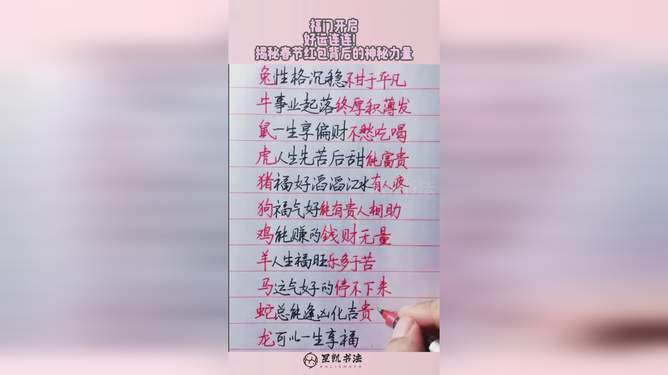 福门开启
好运连连!
揭秘春节红包背后的神秘力量
兔性格沉稳不甘于平凡
牛事业起落终厚积薄发
鼠一生享偏财不愁吃喝
虎人生先苦后甜能富贵
猪福好滔滔江水有人疼
狗福气好能有贵人相助
鸡能赚的钱财无量
羊人生福旺乐多于苦
马运气好的停不下来
蛇总能逢凶化吉贵
龙可以一生享福
书法